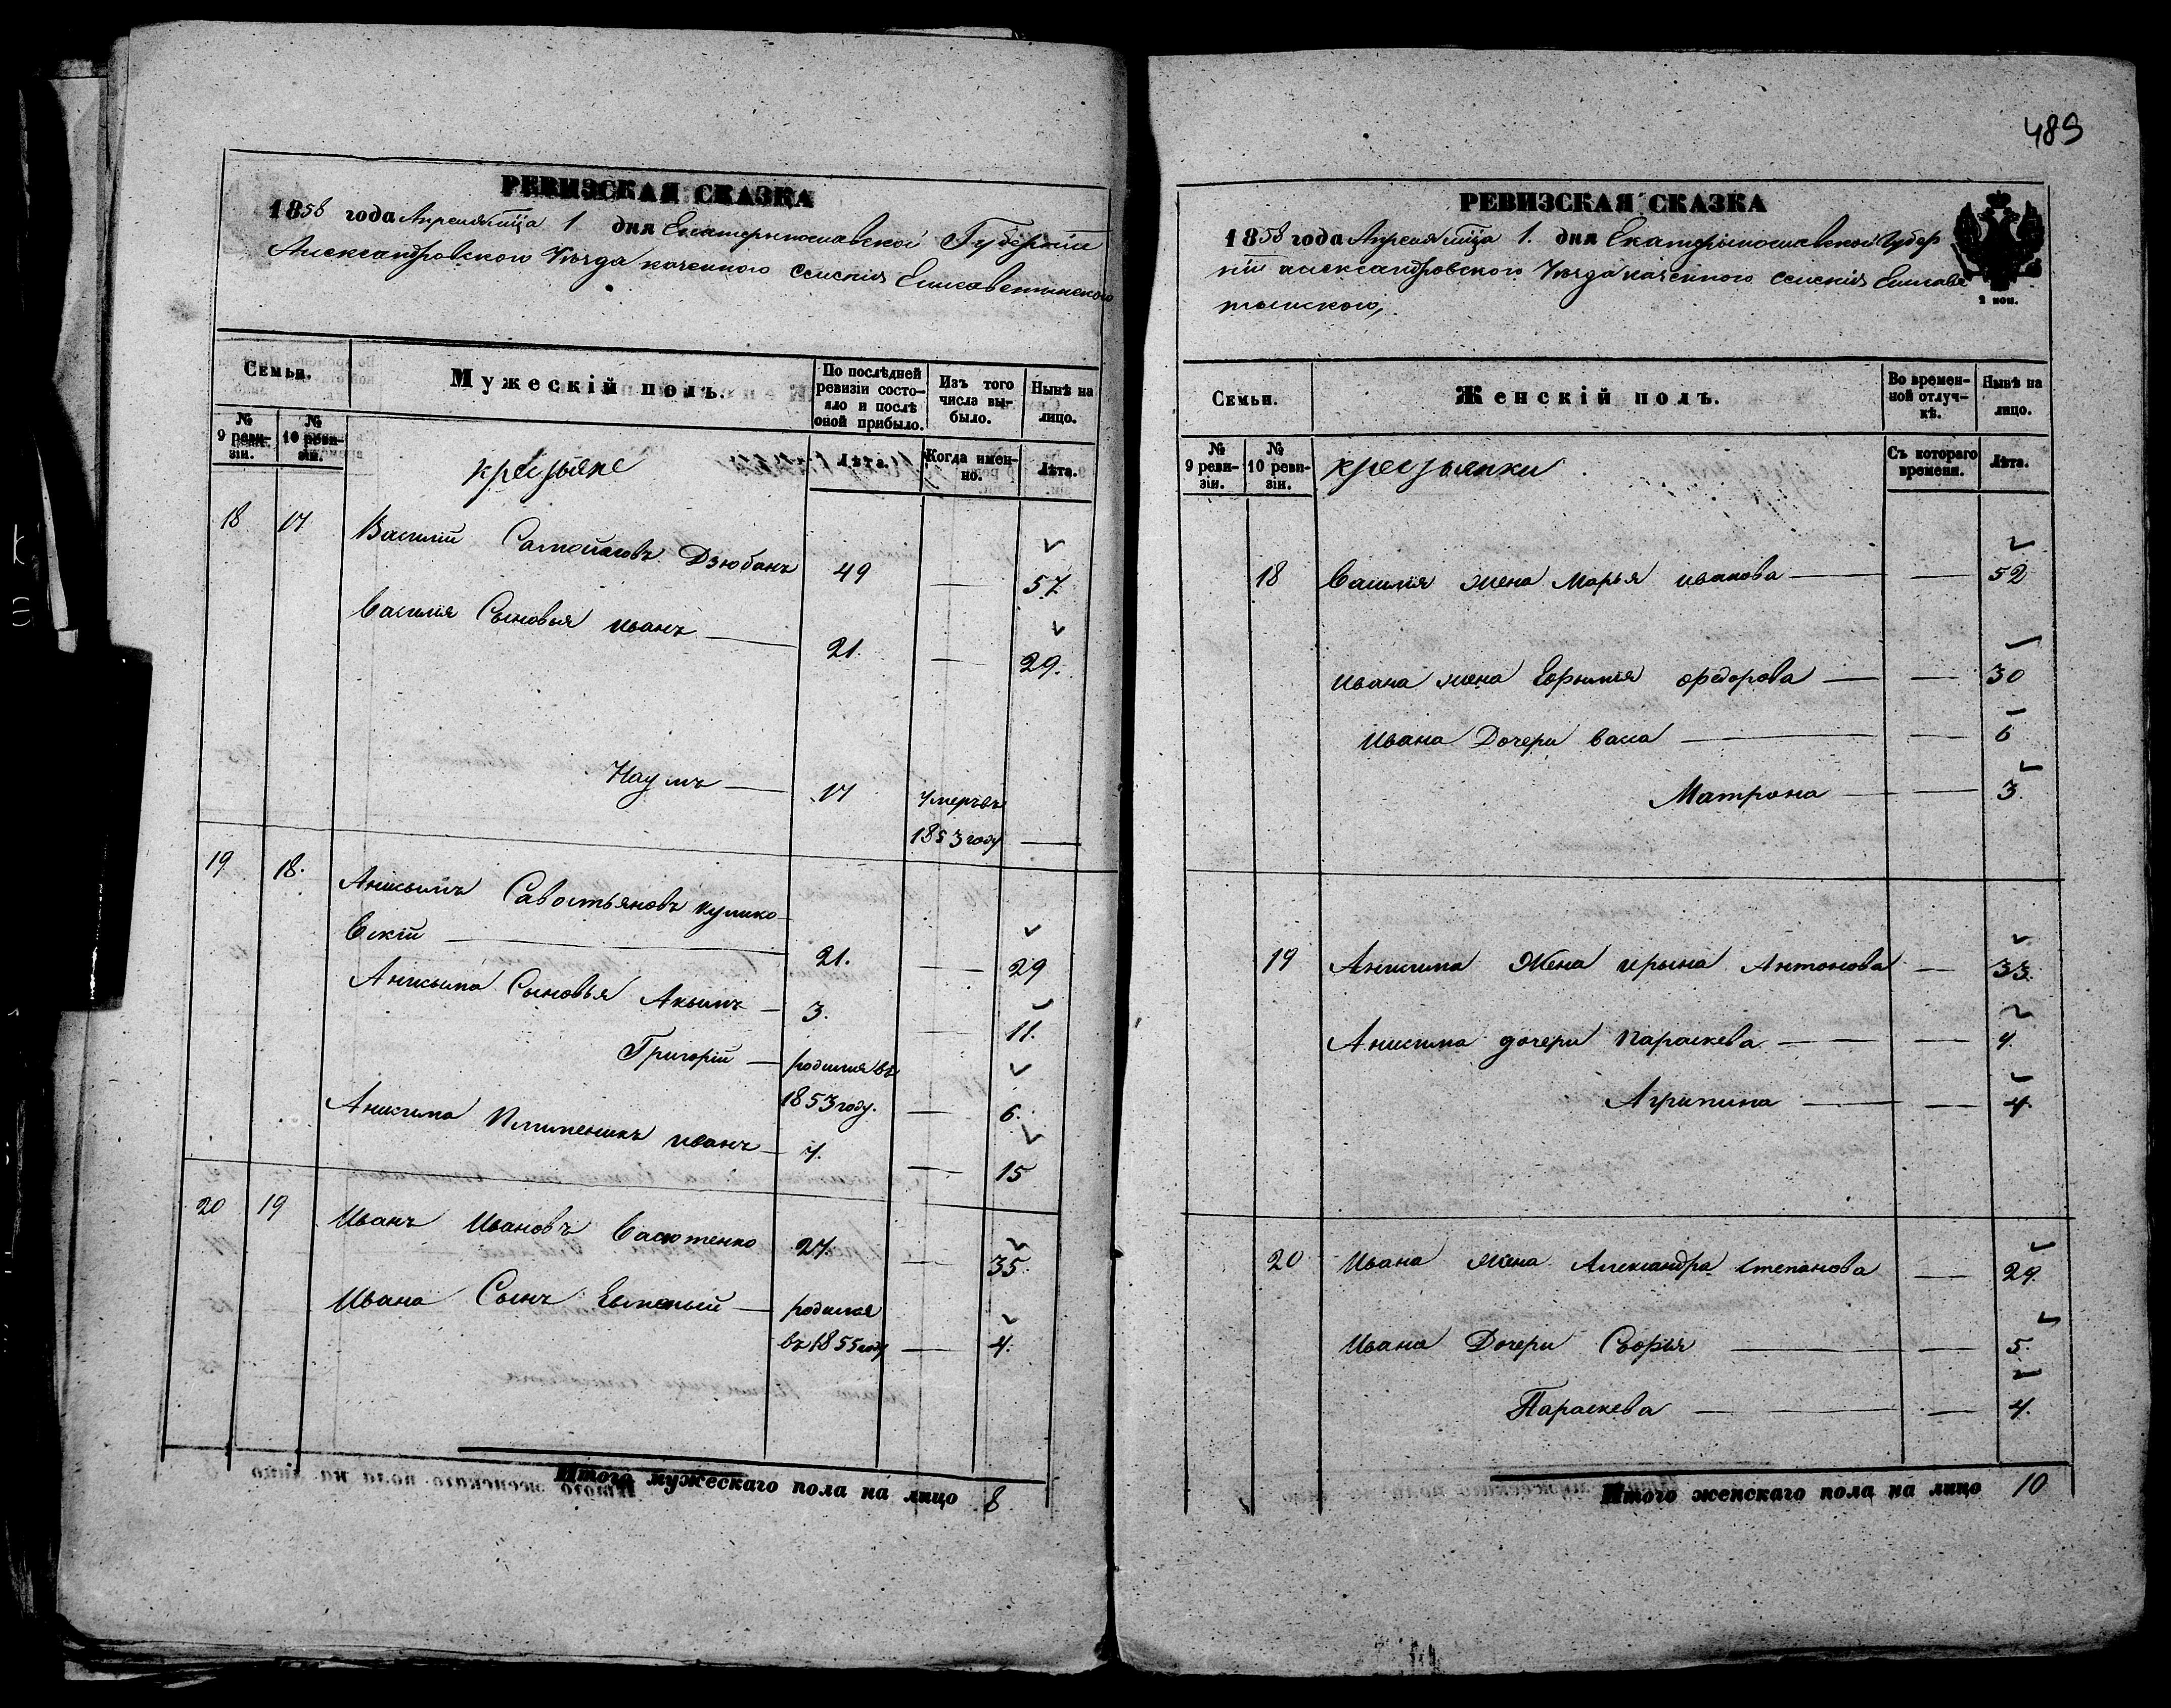 РЕВИЗСКАЯ СКАЗКА
1858 года Апреля м͠ца 1 дня Екатериносławской Губерніи
Александровского Уѣзда казенного селенія Елисаветинского
Семьи.
Мужескій полъ.
По послѣдней ревизіи состояло и послѣ оной прибыло.
Изъ того числа выбыло.
Нынѣ на лицо.
№ 9 ревизіи.
№ 10 ревизіи.
крестьяне
Лѣта.
Когда именно.
Лѣта.
18 17 Василій Самойловъ Дзюбанъ 49 — 57
Василія Сыновья иванъ — 21. — 29.
Наумъ — 17 умеръ въ
1853 году —
19 18. Анисимъ Савостьяновъ кулико-
вскій — 21. — 29
Анисима Сыновья Акымъ — 3. — 11.
Григорій — родился въ
1853 году. — 6.
Анисима Племеникъ иванъ — 7. — 15
20 19 Иванъ Ивановъ Васютенко 27. — 35.
Ивана Сынъ Евгеный — родился
въ 1855 году — 4.
Итого мужескаго пола на лицо 8
489
РЕВИЗСКАЯ СКАЗКА
1858 года Апреля м͠ца 1. дня Екатериносławской Губер
ніи александровского Уѣзда казенного селенія Елисаве
тинского,
2 коп.
Семьи.
Женскій полъ.
Во временной отлучкѣ.
Нынѣ на лицо.
№ 9 ревизіи.
№ 10 ревизіи.
крестьянки
Съ котораго времени.
Лѣта.
18 Василія жена Марья иванова — — 52
Ивана жена Ефимія федорова — — 30
Ивана Дочери васа — — 6
Матрона — — 3.
19 Анисима Жена ирына Антонова — 33.
Анисима дочери Параскева — — 7.
Агрипина — — 4.
20 Ивана Жена Александра степанова — 29.
Ивана Дочери Софья — — 5.
Параскева — — 4.
Итого женскаго пола на лицо 10